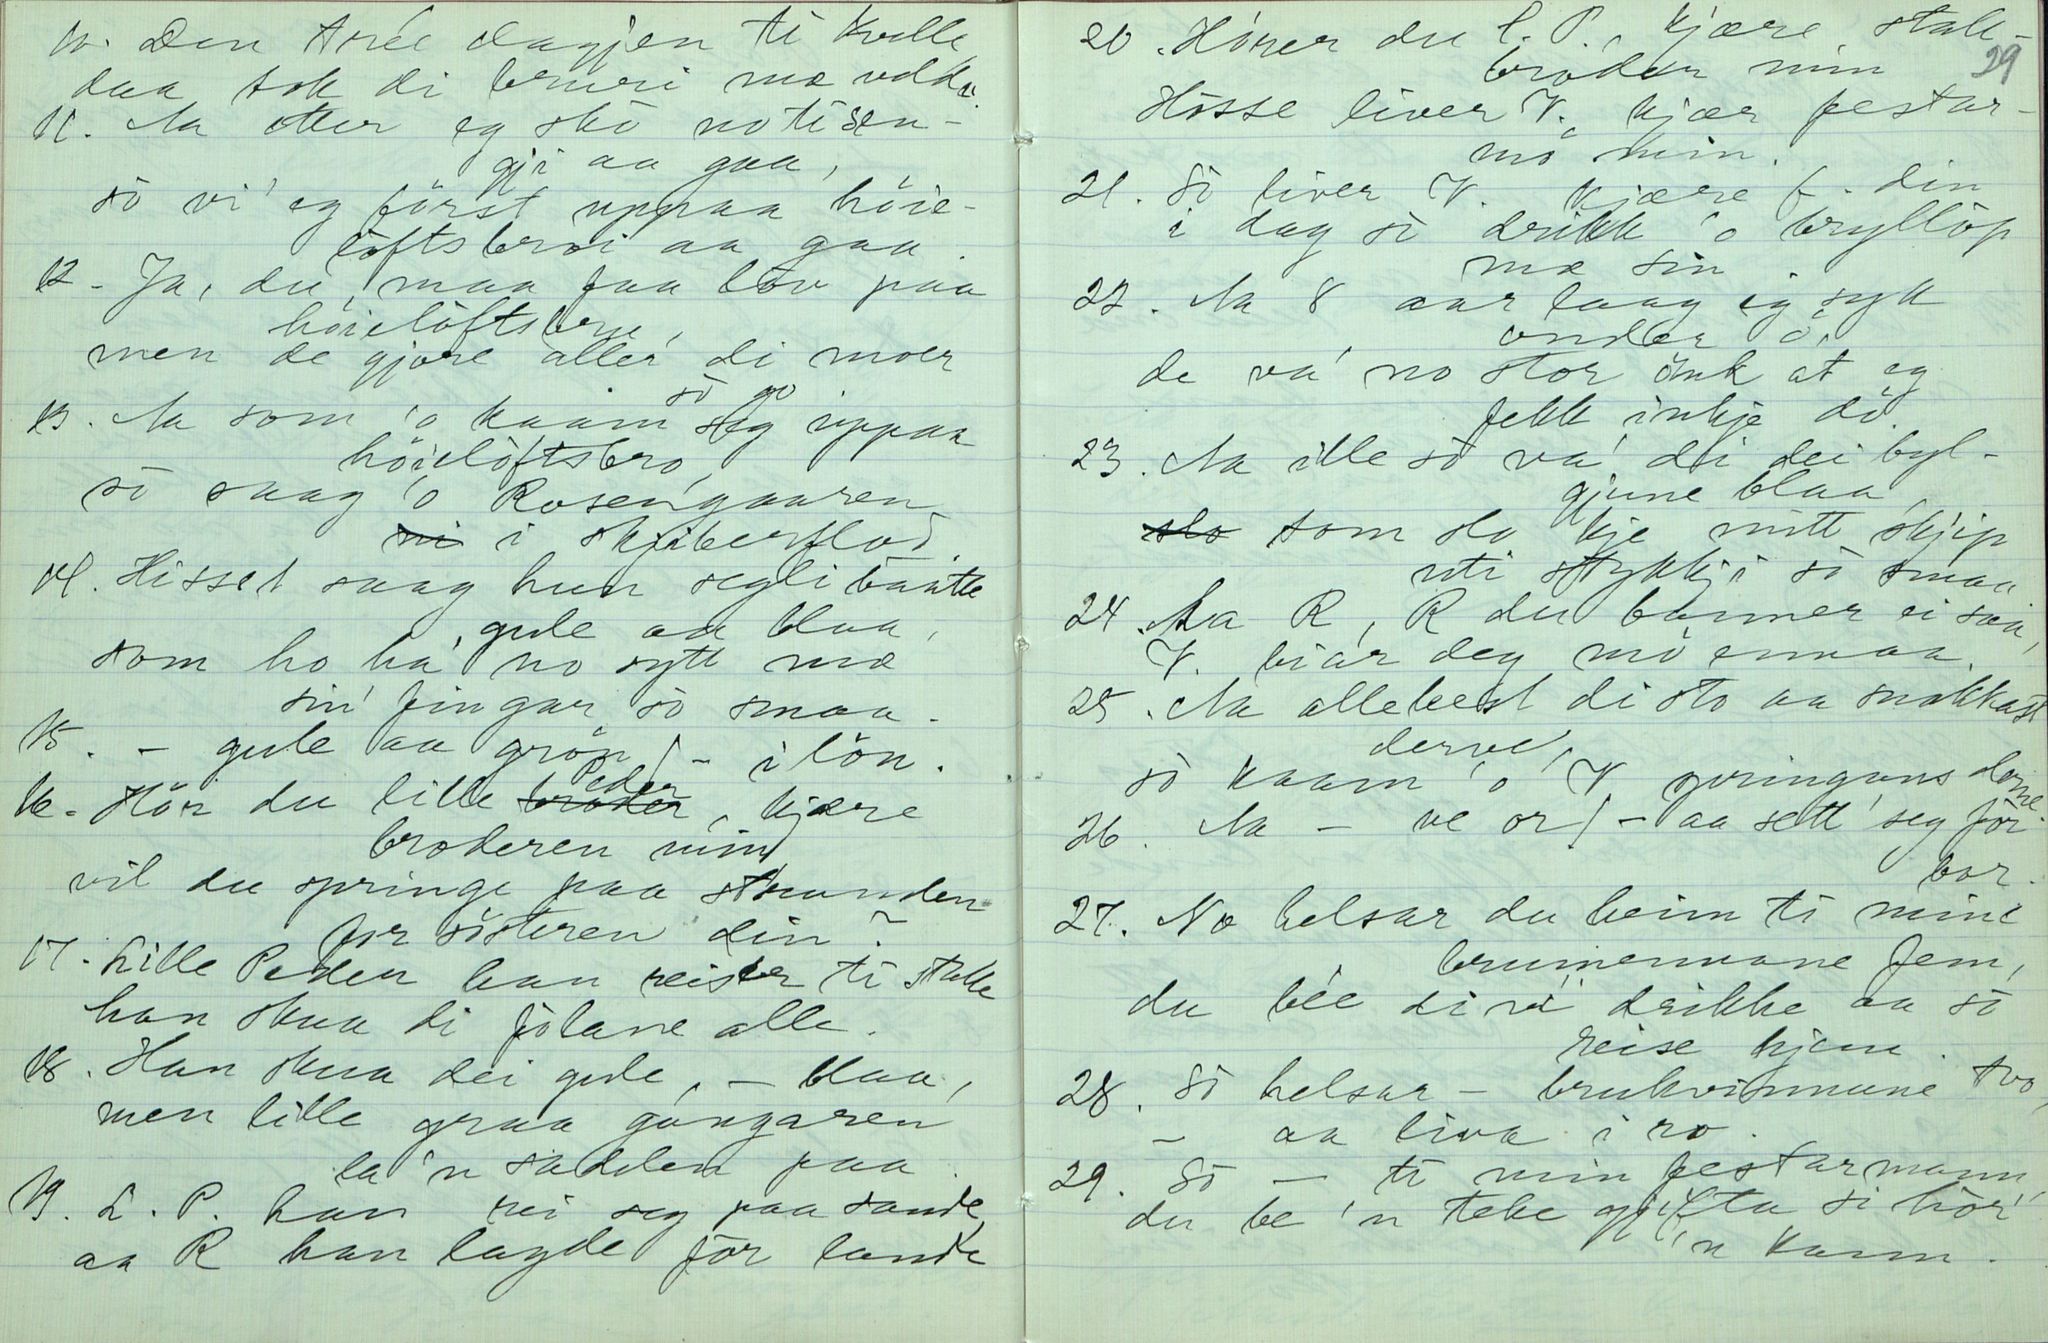 10. Den tree dagjen ti kvelle
daa tok di bruri mæ velde.
11. Aa etter eg skò no ti sen-
gji aa gaa,
sò vi' eg først uppaa höie-
löftsbroi aa gaa.
12. Ja, du maa faa lov paa
höieløftsbru,
men de gjore aller di moer
sò go
13. Aa som 'o kaam seg uppaa
höieløftsbro,
sò saag 'o Rosengaaren
i skjiberflod.
14. Hisset saag hun segli baatte
gule aa blaa,
som ho ha' no sytt mæ
sin' fingar sò smaa.
15. – gule aa grön / – i lön.
16. Hör du lille broder Peder, kjære
broderen min,
vil du springe paa stranden
for sösteren din?
17. Lille Peder han reiser ti stalle
han skua di fòlane alle.
18. Han skua dei gule, – blaa,
men lille graa gangaren
la 'n sadelen paa.
19. L. P. han rei seg paa sande,
aa R han lagde för lande
29
20. Hörer du l. P., kjære stall-
broder min
Hosse liver V., kjær festar-
mø min.
21. Sò liver V. kjære f. din
i dag sò drikk 'o bryllöp
mæ sin
22. Aa 8 aar laag eg syk
onder ö,
de va' no stor önk at eg
fekk inkje dö.
23. Aa ille sò va' di dei byl-
gjune blaa,
som slo kje mitt skjip
uti stykkji sò smaa
24. Aa R, R du banner ei saa,
V. biar deg mò ennaa.
25. Aa allebest di sto aa snakkast
derve,
sò kaam 'o V springans derne.
26. Aa – ve or / – aa sett' seg för
bor.
27. No helsar du heim ti mine
bruimennane fem,
du bée di vi drikke aa sò
reise hjem.
28. Sò helsar – brukvinnune tvo,
– aa liva i ro.
29. Sò – ti min festarmann,
du be 'n teke gjifta si hör'
'n kann.